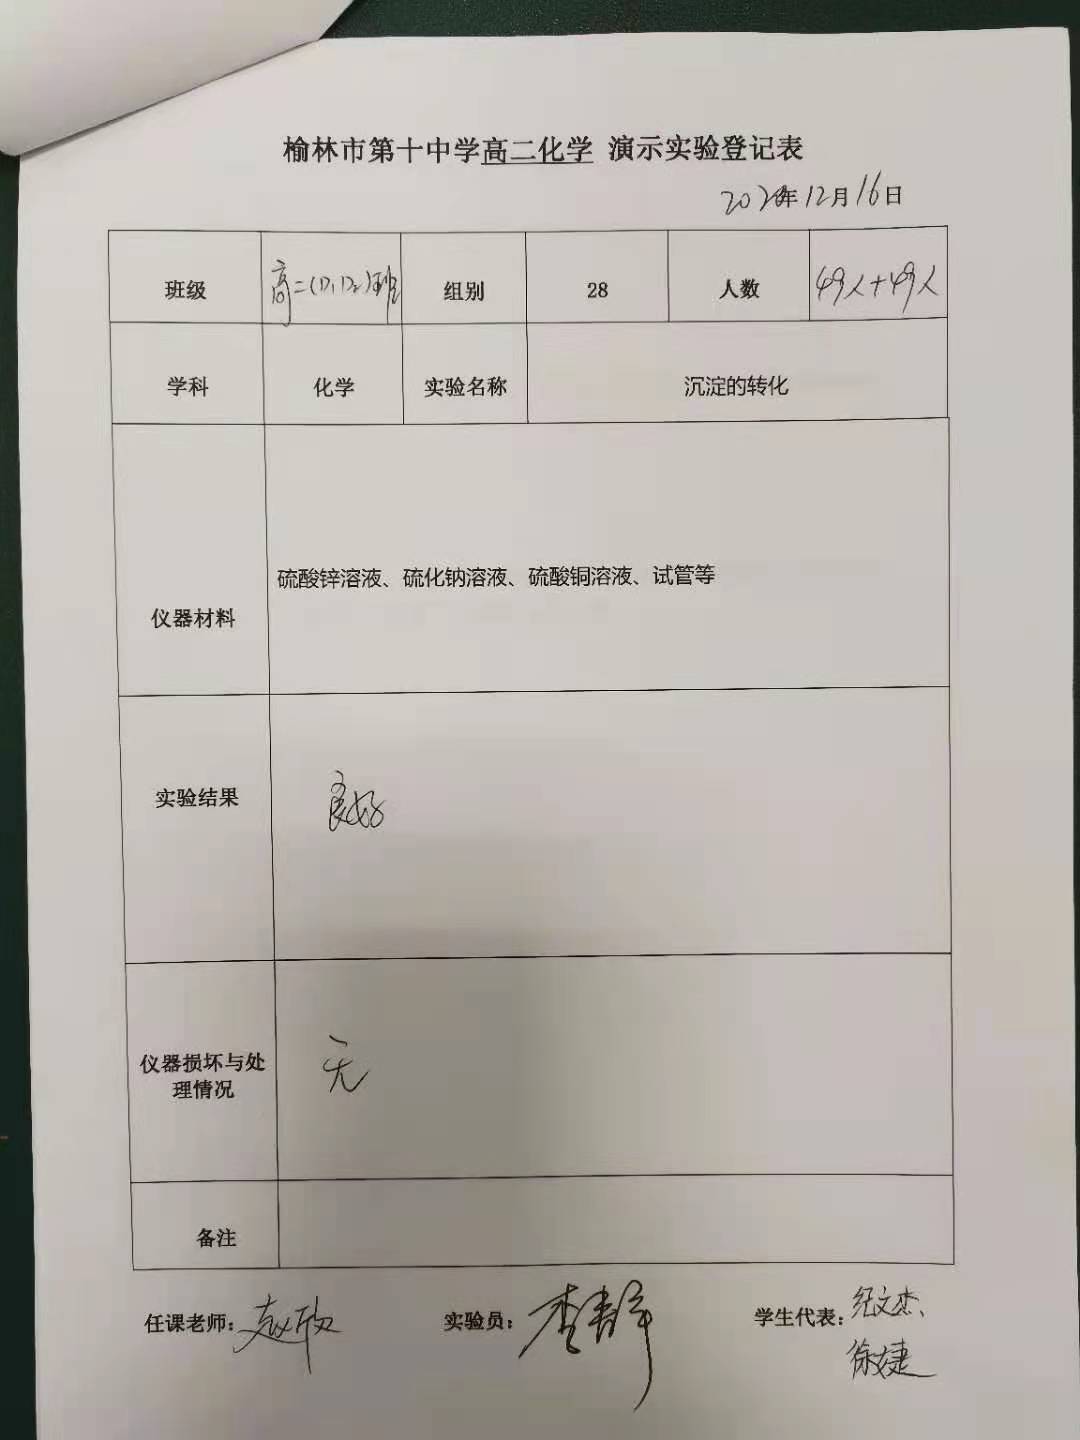 榆林市第十中学高二化学 演示实验登记表
2020年12月16日
班级 高二(17,172)班 组别 28 人数 49人+49人
学科 化学 实验名称 沉淀的转化
硫酸锌溶液、硫化钠溶液、硫酸铜溶液、试管等
仪器材料
实验结果 良好
仪器损坏与处
理情况
无
备注
任课老师: 实验员: 学生代表: 纪文杰、
徐婕